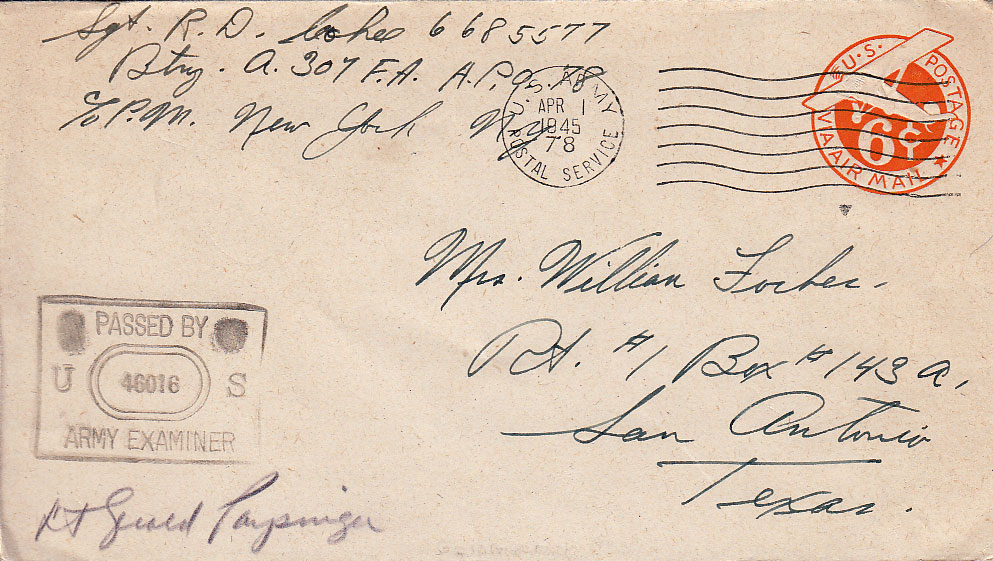 Sgt. R. D. 6685577
Btry. A. 307 F.A. A.P.O. 78
℅ P.M. New York N.Y.
U.S. ARMY
APR 1
1945
78
POSTAL SERVICE
U.S. POSTAGE
6¢
VIA AIR MAIL
Mrs. William Forbes.
Rt. #1 Box #143 A.
San Antonio
Texas.
PASSED BY
U 46016 S
ARMY EXAMINER
Lt Gerald